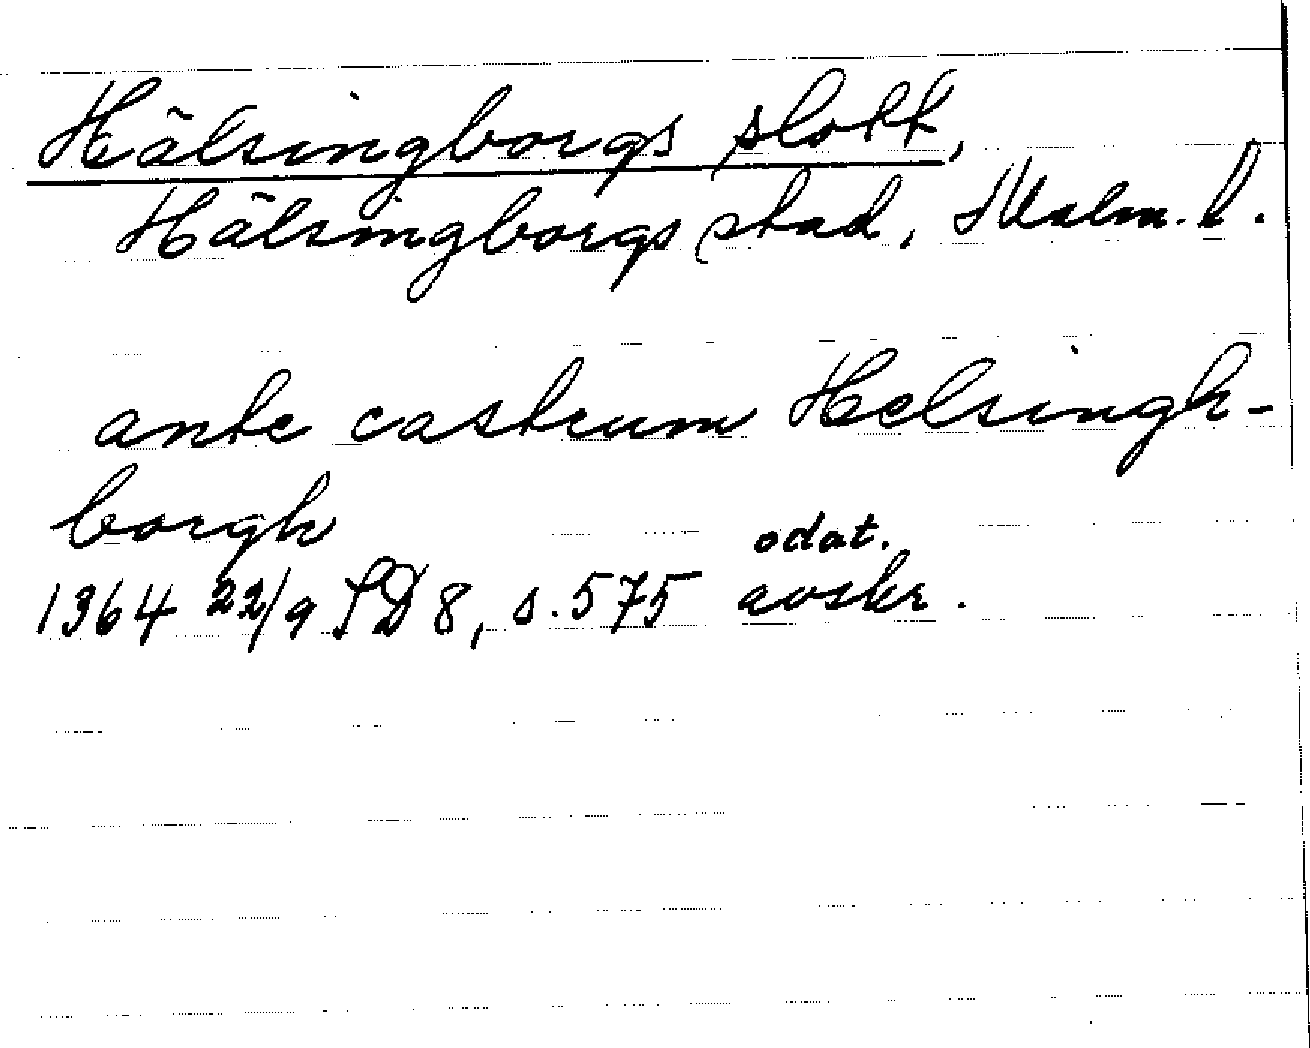 Hälsingborgs slott,
Hälsingborgs stad, Malm. l.
ante castrum Helsingh-
borgh
odat.
1364 22/9 SD 8, s. 575 avskr.